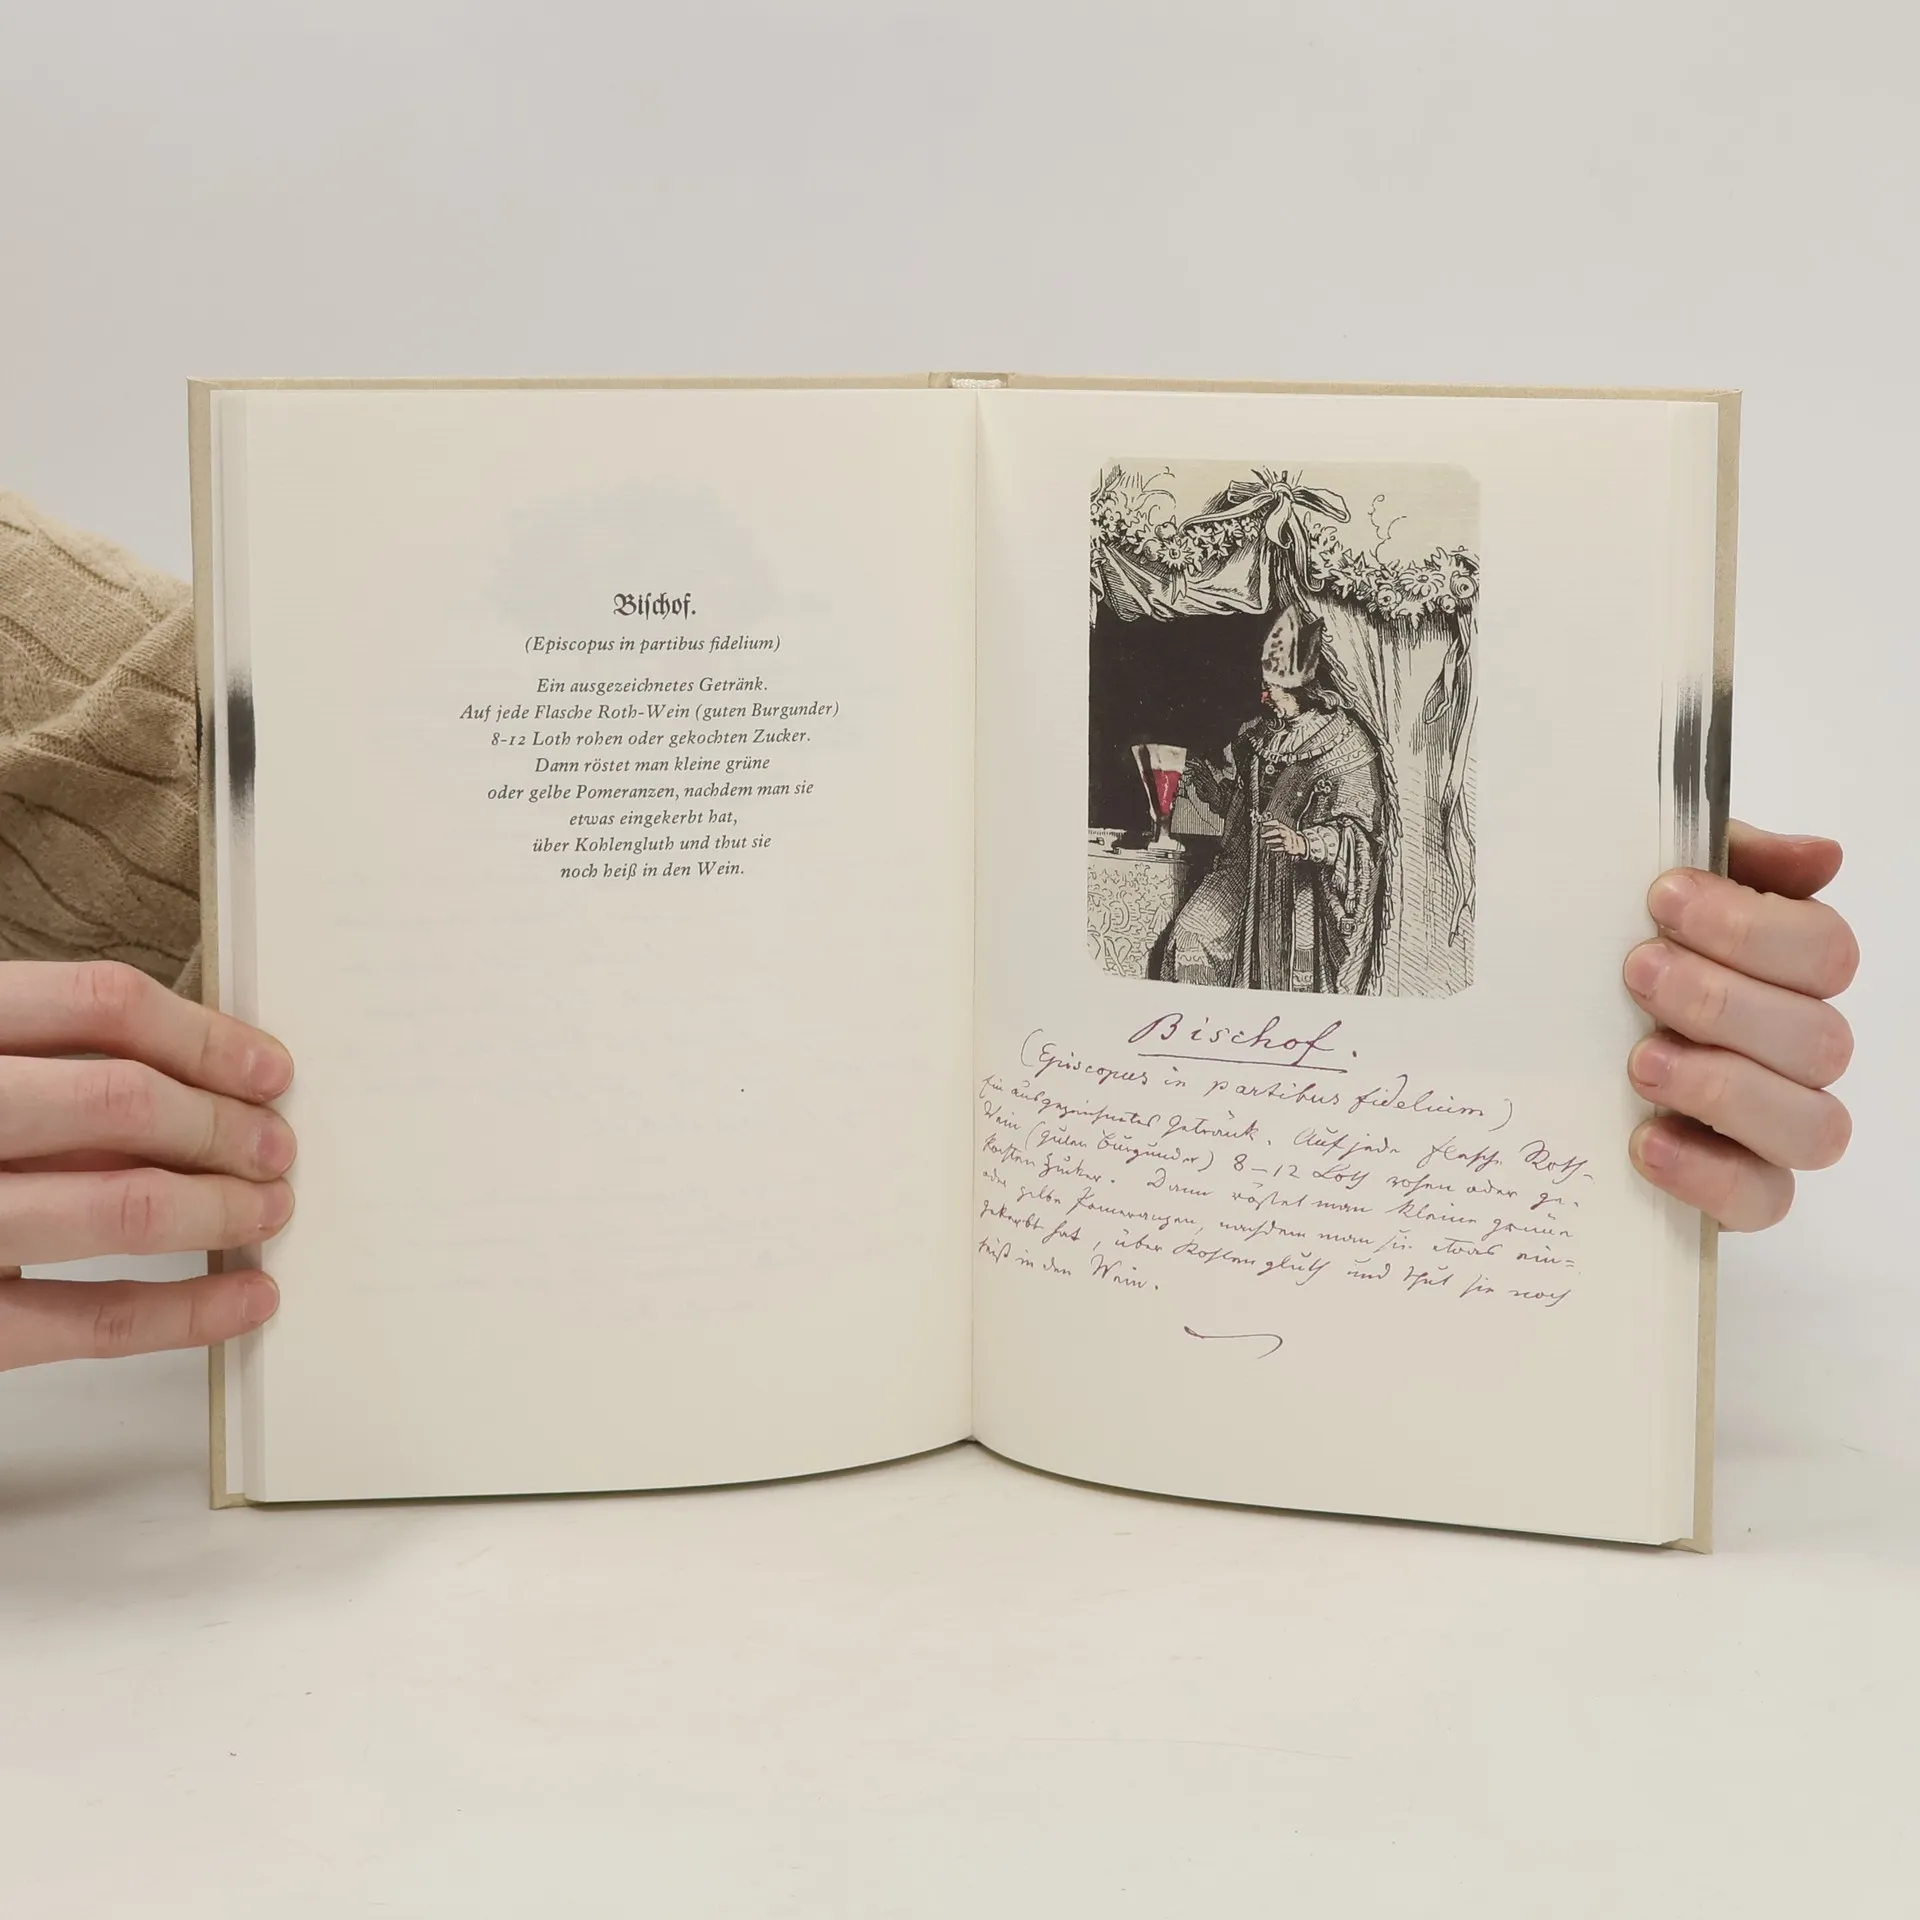 Bischof.
(Episcopus in partibus fidelium)
Ein ausgezeichnetes Getränk.
Auf jede Flasche Roth-Wein (guten Burgunder)
8-12 Loth rohen oder gekochten Zucker.
Dann röstet man kleine grüne
oder gelbe Pomeranzen, nachdem man sie
etwas eingekerbt hat,
über Kohlengluth und thut sie
noch heiß in den Wein.
Bischof.
(Episcopus in partibus fidelium)
Ein ausgezeichnetes Getränk. Auf jede Flasche Roth-
Wein (guten Burgunder) 8–12 Loth rohen oder ge-
kochten Zucker. Dann röstet man kleine grüne
oder gelbe Pomeranzen, nachdem man sie etwas ein=
gekerbt hat, über Kohlengluth und thut sie noch
heiß in den Wein.